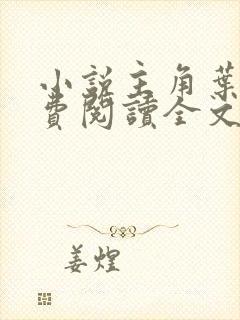 小說主角葉
費閱讀全文
姜煌